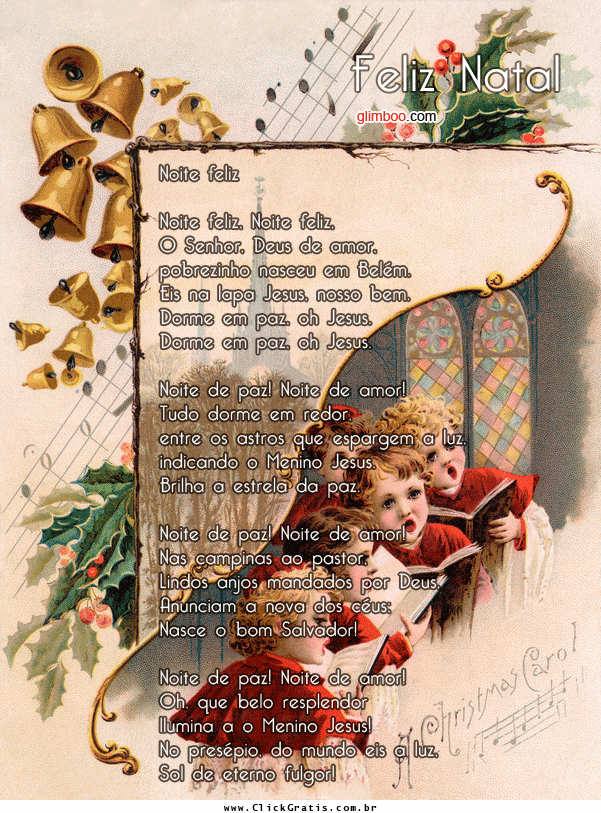 Feliz Natal
glimboo.com
Noite feliz
Noite feliz, Noite feliz,
O Senhor, Deus de amor,
pobrezinho nasceu em Belém.
Eis na lapa Jesus, nosso bem.
Dorme em paz, oh Jesus.
Dorme em paz, oh Jesus.
Noite de paz! Noite de amor!
Tudo dorme em redor,
entre os astros que espargem a luz,
indicando o Menino Jesus.
Brilha a estrela da paz.
Noite de paz! Noite de amor!
Nas campinas ao pastor,
Lindos anjos mandados por Deus,
Anunciam a nova dos céus;
Nasce o bom Salvador!
Noite de paz! Noite de amor!
Oh, que belo resplendor
Ilumina a o Menino Jesus!
No presépio, do mundo eis a luz,
Sol de eterno fulgor!
A Christmas Carol
www.ClickGratis.com.br